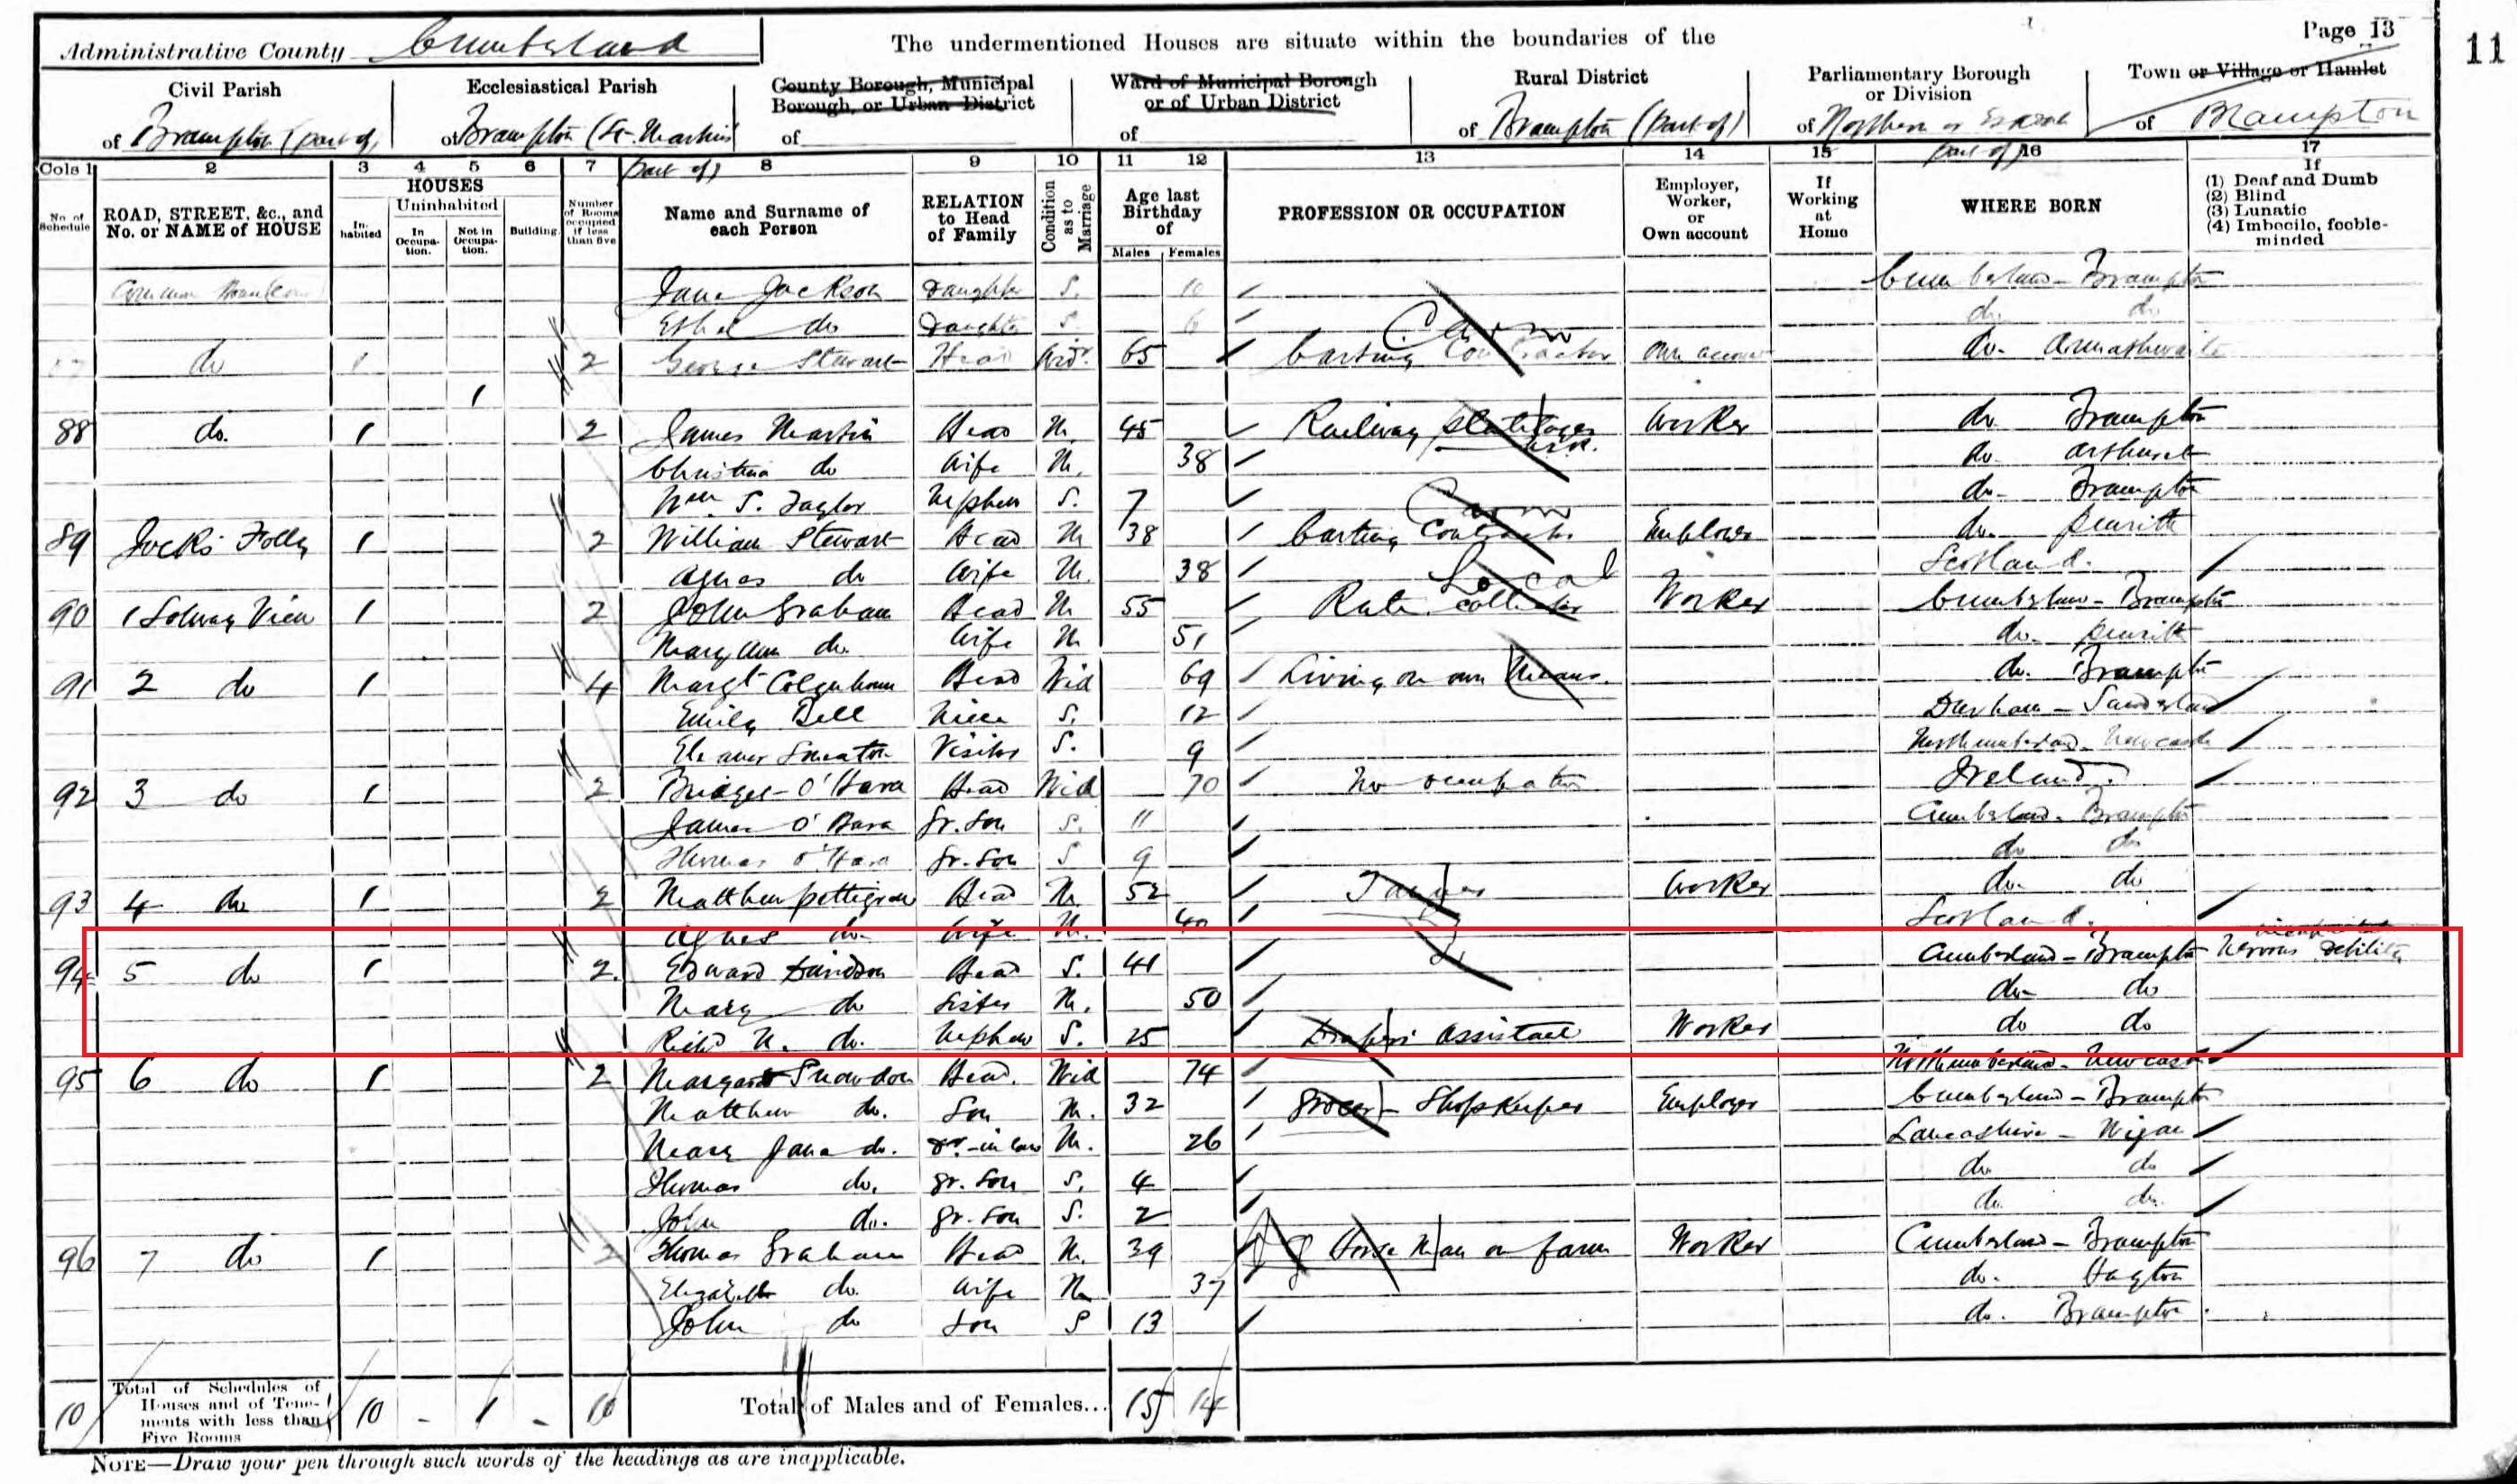 Page 13
11
Administrative County Cumberland
The undermentioned Houses are situate within the boundaries of the
Civil Parish of Brampton (part of)
Ecclesiastical Parish of Brampton (St. Martins part of)
County Borough, Municipal Borough, or Urban District of
Ward of Municipal Borough or of Urban District of
Rural District of Brampton (part of)
Parliamentary Borough or Division of Northern or part of)
Town or Village or Hamlet of Brampton
Cols 1 2 3 4 5 6 7 8 9 10 11 12 13 14 15 16 17
No. of Schedule
ROAD, STREET, &c., and No. or NAME of HOUSE
HOUSES
Inhabited
Uninhabited
In Occupation.
Not in Occupation.
Building.
Number of Rooms occupied if less than five
Name and Surname of each Person
RELATION to Head of Family
Condition as to Marriage
Age last Birthday of
Males Females
PROFESSION OR OCCUPATION
Employer, Worker, or Own account
If Working at Home
WHERE BORN
If
(1) Deaf and Dumb
(2) Blind
(3) Lunatic
(4) Imbecile, feeble-minded
Jane Jackson Daughter S. 10 Cumberland - Brampton
Ethel do Daughter S. 6 do. do.
do 1 2 George Stewart Head Widr. 65 Carting Contractor Own account do. Armathwaite
1
88 do. 1 2 James Martin Head M. 45 Railway Platelayer Worker do Brampton
Christina do Wife M. 38 do. Arthuret
Wm. S. Taylor Nephew S. 7 do. Brampton
89 Jocks Folly 1 2 William Stewart Head M 38 Carting Contractor Employer do. Penrith
Agnes do Wife M. 38 Scotland.
90 1 Solway View 1 2 John Graham Head M 55 Rate Collector Local Worker Cumberland - Brampton
Mary Ann do. Wife M 51 do. Penrith
91 2 do 1 4 Margt Colquhoun Head Wid 69 Living on own Means. do. Brampton
Emily Bell Niece S. 12 Durham - Sunderland
Eleanor Smeaton Visitor S. 9 Northumberland - Newcastle
92 3 do 1 2 Bridget O'Hara Head Wid 70 No occupation Ireland.
James O'Hara Gr. Son S. 11 Cumberland. Brampton
Thomas O'Hara Gr. Son S 9 do do
93 4 do 1 2 Matthew Pettigrew Head M. 52 Worker do. do
Agnes do. Wife M. 40 Scotland.
94 5 do 1 2. Edward Davidson Head S. 41 Cumberland - Brampton Nervous Debility
Mary do Sister M. 50 do do
Richd N. do. Nephew S. 25 Drapers Assistant Worker do do
95 6 do 1 2 Margaret Snowdon Head. Wid 74 Northumberland - Newcastle
Matthew do. Son M. 32 Grocer - Shopkeeper Employer Cumberland - Brampton
Mary Jane do. Dr.-in law M. 26 Lancashire - Wigan
Thomas do. Gr. Son S. 4 do. do
John do. Gr. Son S. 2 do. do.
96 7 do 1 2 Thomas Graham Head M. 39 Horse Man on farm Worker Cumberland - Brampton
Elizabeth do. Wife M 37 do. Hayton
John do Son S 13 do. Brampton
10 Total of Schedules of Houses and of Tenements with less than Five Rooms 10 - 1 - 10 Total of Males and of Females... 15 14
NOTE—Draw your pen through such words of the headings as are inapplicable.